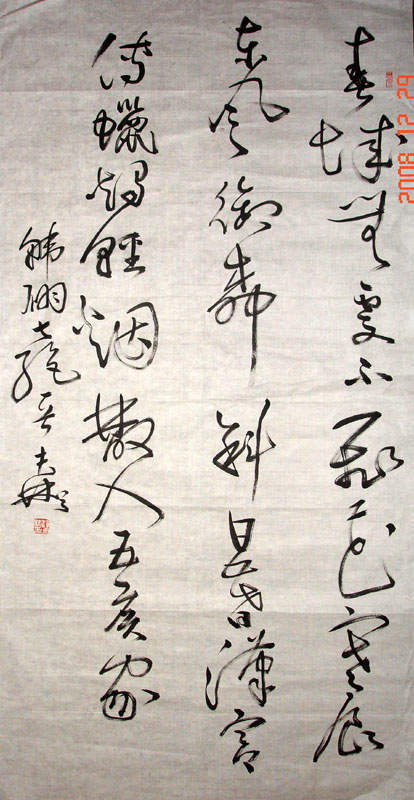 春城無處不飛花寒食
東風御柳斜日暮漢宮
傳蠟燭輕烟散入五侯家
韓翃七絕
2008 12 29